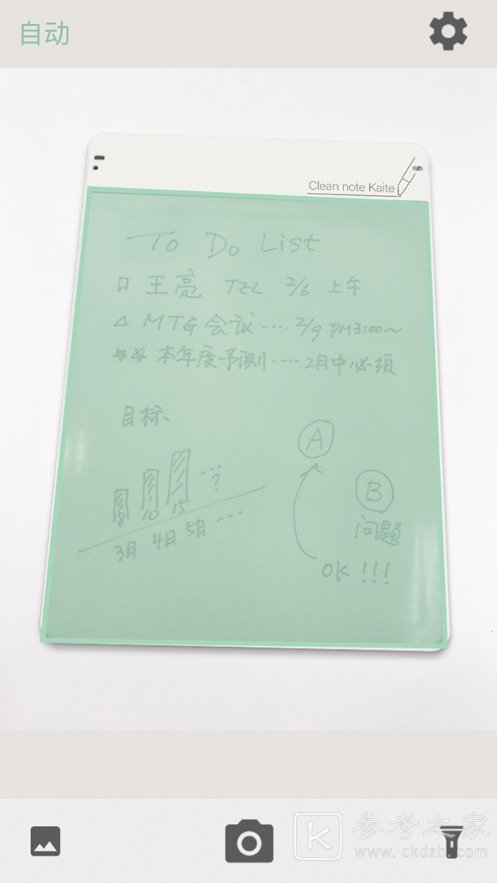 自动
Clean note Kaite
To Do List
口 王亮 TEL 2/6 上午
△ MTG 会议 .... 2/9 PM3:00~
本年度予测 .... 2月中必须
目标、
... ?
8 10 15
3月 4月 5月 ...
A
B
问题
OK !!!
K 参考之家
www.ckdzb.com